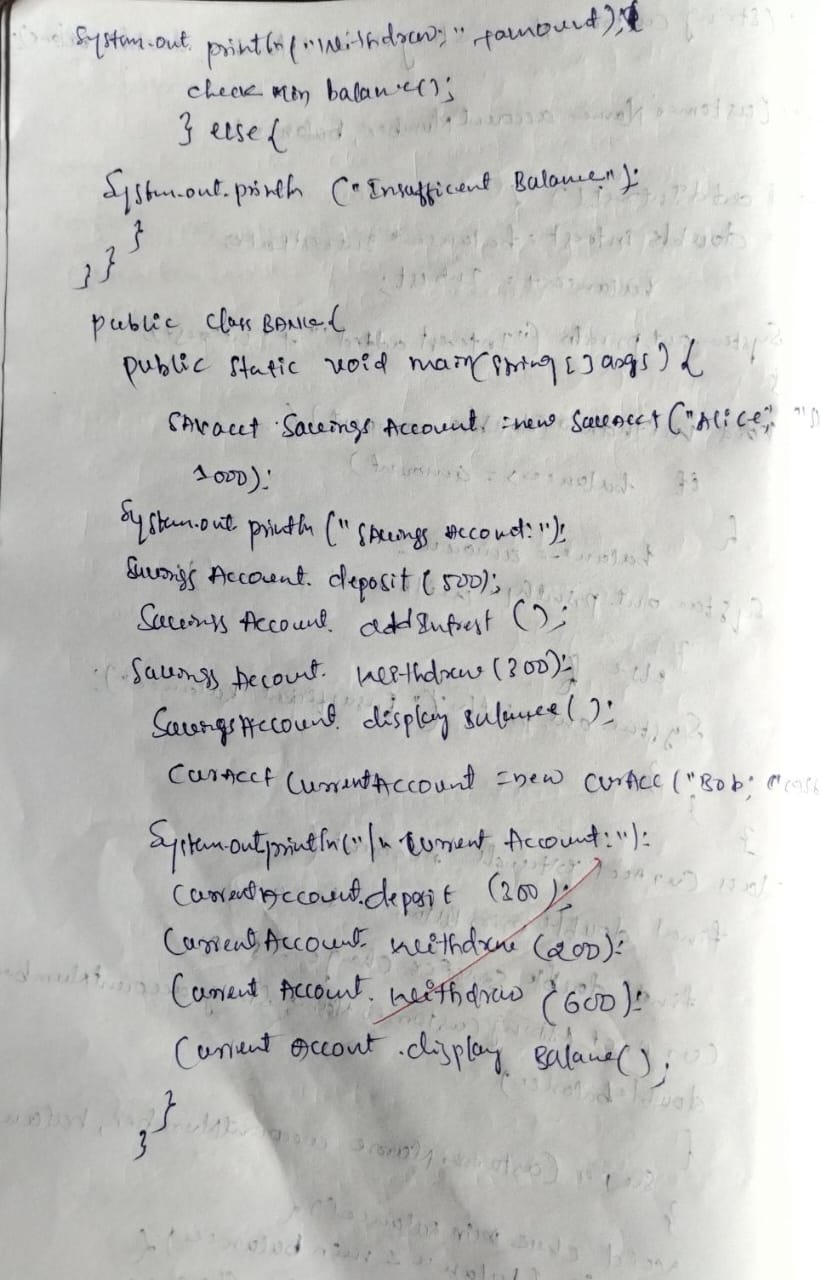 System.out. println("Withdrew;" +amount);
check min balance();
} else {
System.out.println ("Insufficient Balance");
}
}}
public class BANK {
public static void main(String [] args) {
SAVacct Savings Account. =new SavAcct ("Alice",
1000);
System.out println ("SAvings Account:");
Savings Account. deposit (500);
Savings Account. addIntrest ();
Savings Account. withdraw (300);
SavingsAccount. display Balance();
CurAcct CurrentAccount =new CurAcc ("Bob;
System.out.println("\n Current Account:");
CurrentAccount.deposit (200);
Current Account. withdraw (200);
Current Account. withdraw (600);
Current Account .display Balance();
}
}